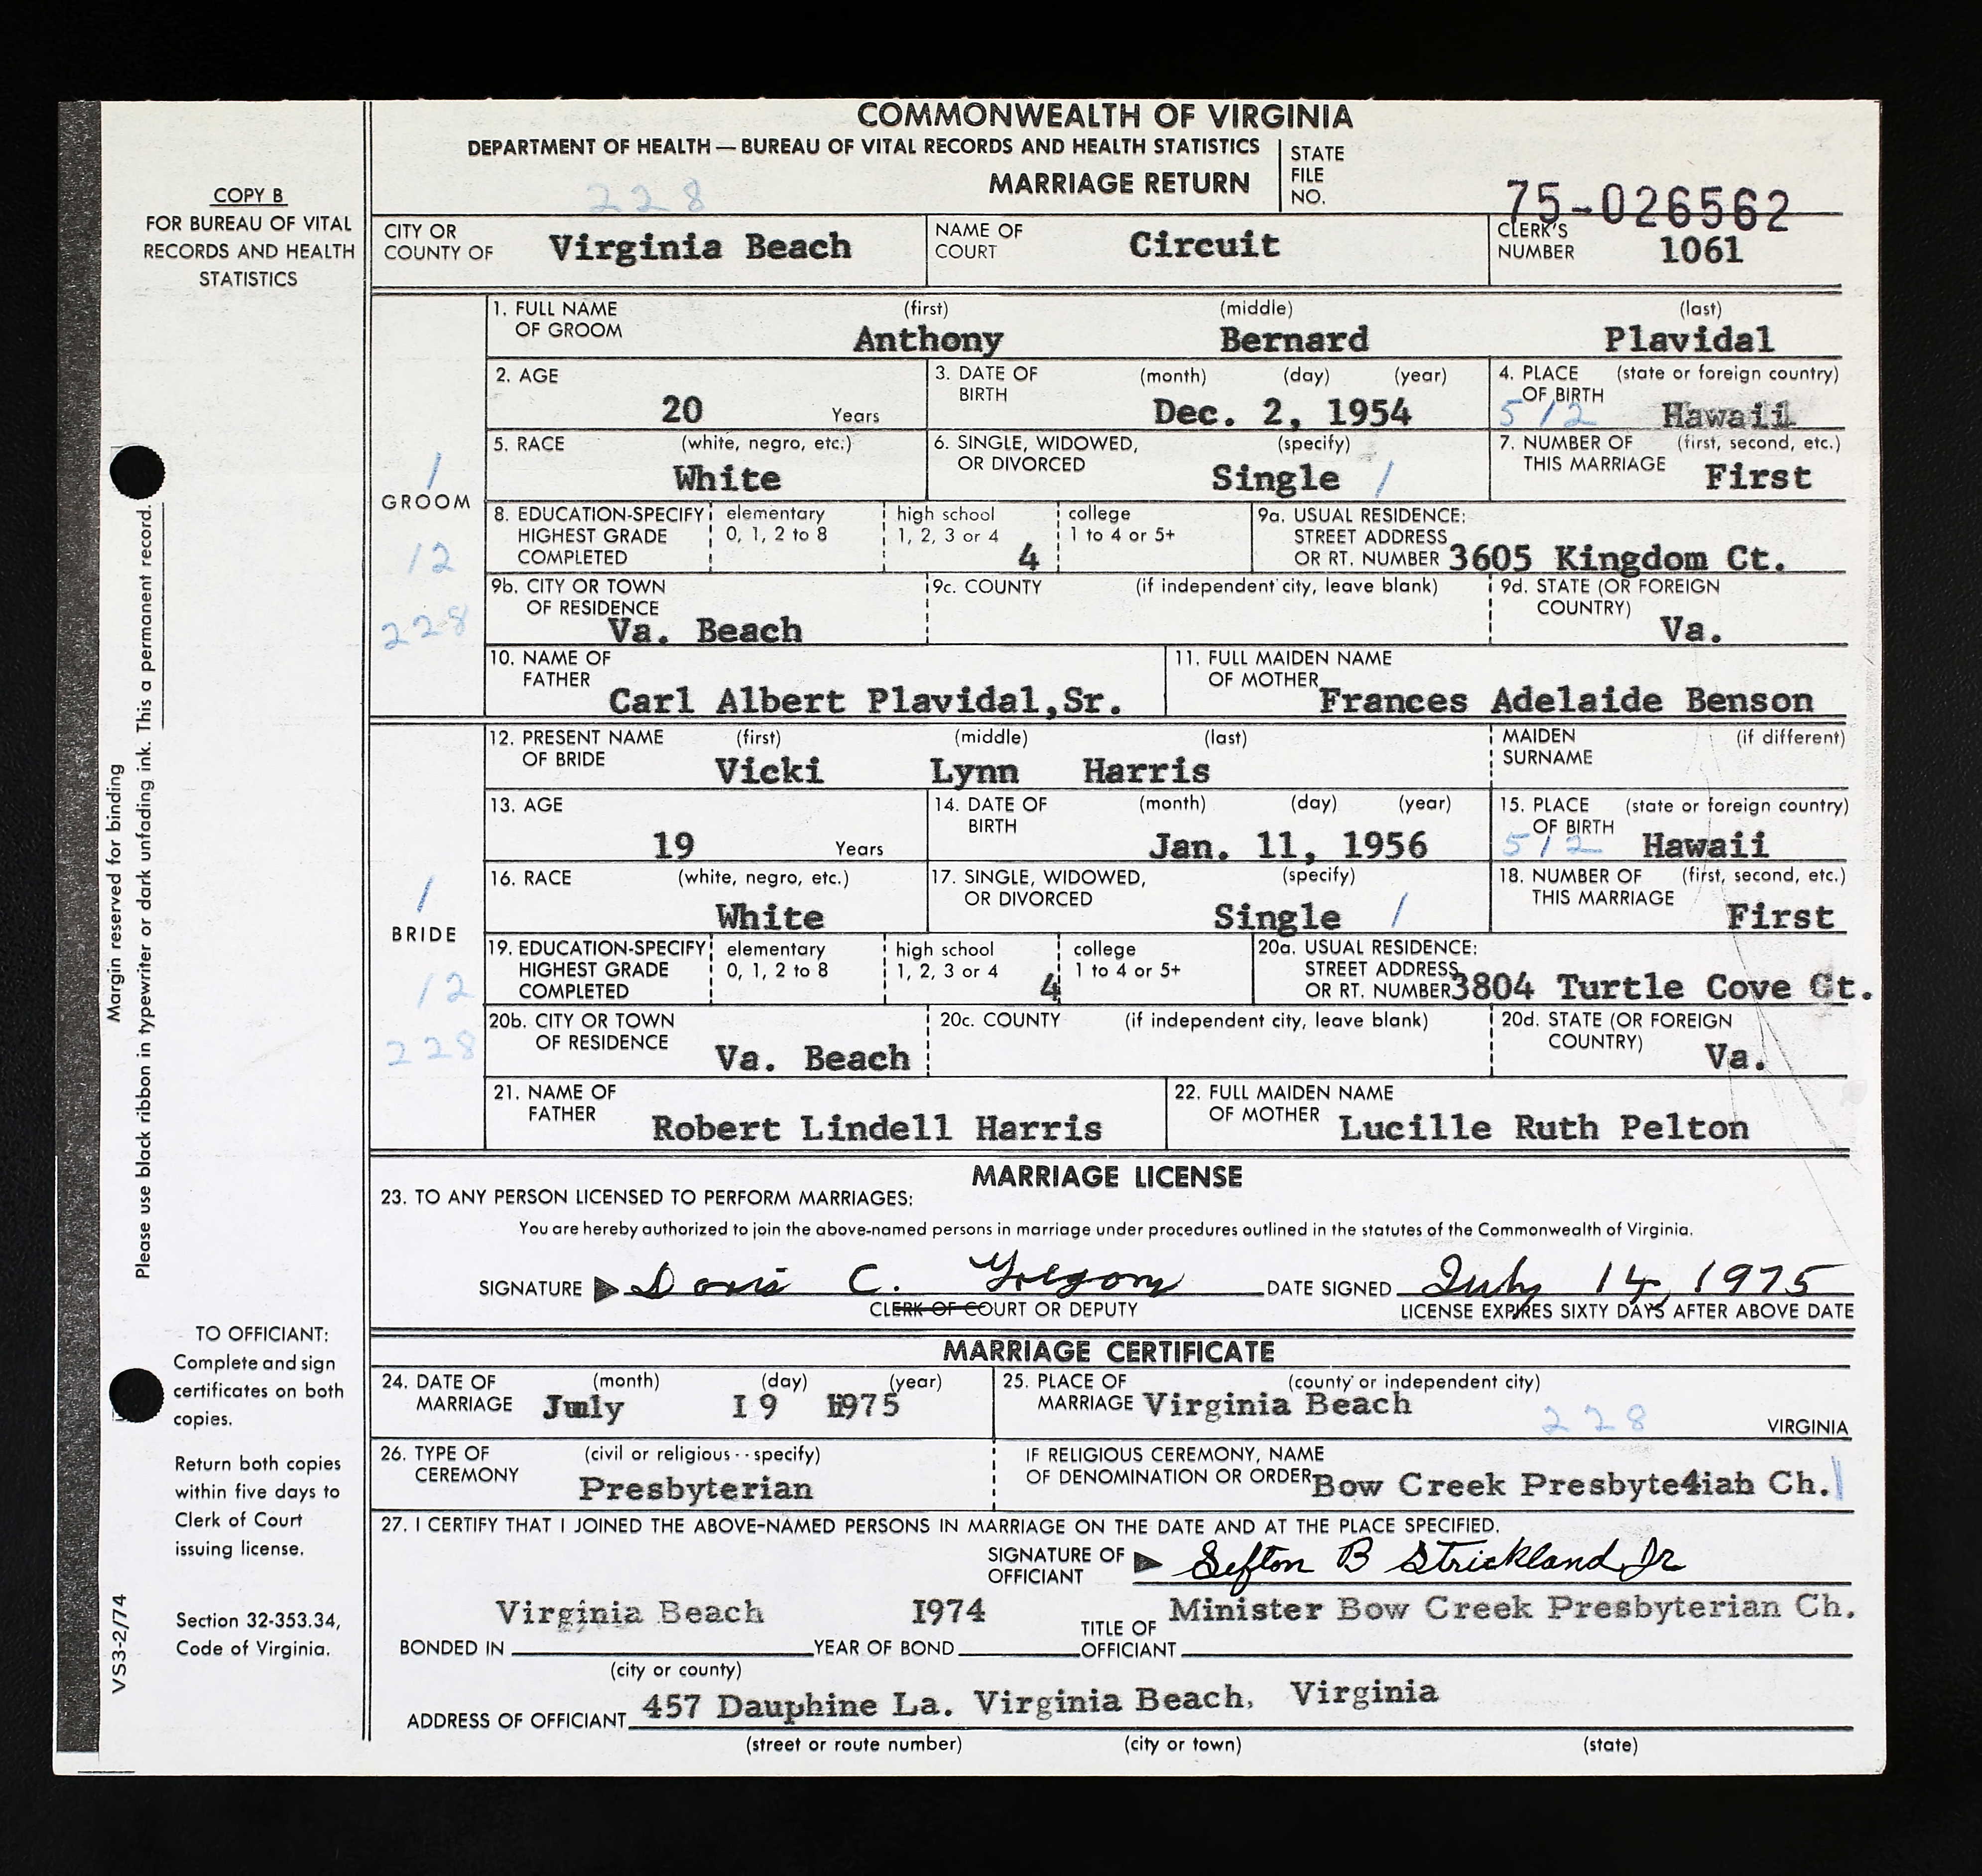 COMMONWEALTH OF VIRGINIA
DEPARTMENT OF HEALTH — BUREAU OF VITAL RECORDS AND HEALTH STATISTICS
MARRIAGE RETURN
228
STATE FILE NO. 75-026562
COPY B
FOR BUREAU OF VITAL
RECORDS AND HEALTH
STATISTICS
CITY OR COUNTY OF Virginia Beach NAME OF COURT Circuit CLERK'S NUMBER 1061
GROOM
1
12
228
1. FULL NAME OF GROOM (first) Anthony (middle) Bernard (last) Plavidal
2. AGE 20 Years 3. DATE OF BIRTH (month) (day) (year) Dec. 2, 1954 4. PLACE OF BIRTH (state or foreign country) 512 Hawaii
5. RACE (white, negro, etc.) White 6. SINGLE, WIDOWED, OR DIVORCED (specify) Single / 7. NUMBER OF THIS MARRIAGE (first, second, etc.) First
8. EDUCATION-SPECIFY HIGHEST GRADE COMPLETED elementary 0, 1, 2 to 8 high school 1, 2, 3 or 4 4 college 1 to 4 or 5+ 9a. USUAL RESIDENCE: STREET ADDRESS OR RT. NUMBER 3605 Kingdom Ct.
9b. CITY OR TOWN OF RESIDENCE Va. Beach 9c. COUNTY (if independent city, leave blank) 9d. STATE (OR FOREIGN COUNTRY) Va.
10. NAME OF FATHER Carl Albert Plavidal,Sr. 11. FULL MAIDEN NAME OF MOTHER Frances Adelaide Benson
BRIDE
1
12
228
12. PRESENT NAME OF BRIDE (first) Vicki (middle) Lynn (last) Harris MAIDEN SURNAME (if different)
13. AGE 19 Years 14. DATE OF BIRTH (month) (day) (year) Jan. 11, 1956 15. PLACE OF BIRTH (state or foreign country) 512 Hawaii
16. RACE (white, negro, etc.) White 17. SINGLE, WIDOWED, OR DIVORCED (specify) Single / 18. NUMBER OF THIS MARRIAGE (first, second, etc.) First
19. EDUCATION-SPECIFY HIGHEST GRADE COMPLETED elementary 0, 1, 2 to 8 high school 1, 2, 3 or 4 4 college 1 to 4 or 5+ 20a. USUAL RESIDENCE: STREET ADDRESS OR RT. NUMBER 3804 Turtle Cove Ct.
20b. CITY OR TOWN OF RESIDENCE Va. Beach 20c. COUNTY (if independent city, leave blank) 20d. STATE (OR FOREIGN COUNTRY) Va.
21. NAME OF FATHER Robert Lindell Harris 22. FULL MAIDEN NAME OF MOTHER Lucille Ruth Pelton
MARRIAGE LICENSE
23. TO ANY PERSON LICENSED TO PERFORM MARRIAGES:
You are hereby authorized to join the above-named persons in marriage under procedures outlined in the statutes of the Commonwealth of Virginia.
SIGNATURE Doris C. Gregory DATE SIGNED July 14, 1975
CLERK OF COURT OR DEPUTY LICENSE EXPIRES SIXTY DAYS AFTER ABOVE DATE
MARRIAGE CERTIFICATE
24. DATE OF MARRIAGE (month) (day) (year) July I9 1975 25. PLACE OF MARRIAGE (county or independent city) Virginia Beach 228 VIRGINIA
26. TYPE OF CEREMONY (civil or religious - - specify) Presbyterian IF RELIGIOUS CEREMONY, NAME OF DENOMINATION OR ORDER Bow Creek Presbyte4ian Ch.
27. I CERTIFY THAT I JOINED THE ABOVE-NAMED PERSONS IN MARRIAGE ON THE DATE AND AT THE PLACE SPECIFIED.
SIGNATURE OF OFFICIANT Sefton B Strickland Jr
BONDED IN Virginia Beach YEAR OF BOND I974 TITLE OF OFFICIANT Minister Bow Creek Presbyterian Ch.
(city or county)
ADDRESS OF OFFICIANT 457 Dauphine La. Virginia Beach, Virginia
(street or route number) (city or town) (state)
TO OFFICIANT:
Complete and sign
certificates on both
copies.
Return both copies
within five days to
Clerk of Court
issuing license.
Section 32-353.34,
Code of Virginia.
Margin reserved for binding
Please use black ribbon in typewriter or dark unfading ink. This a permanent record.
VS3-2/74